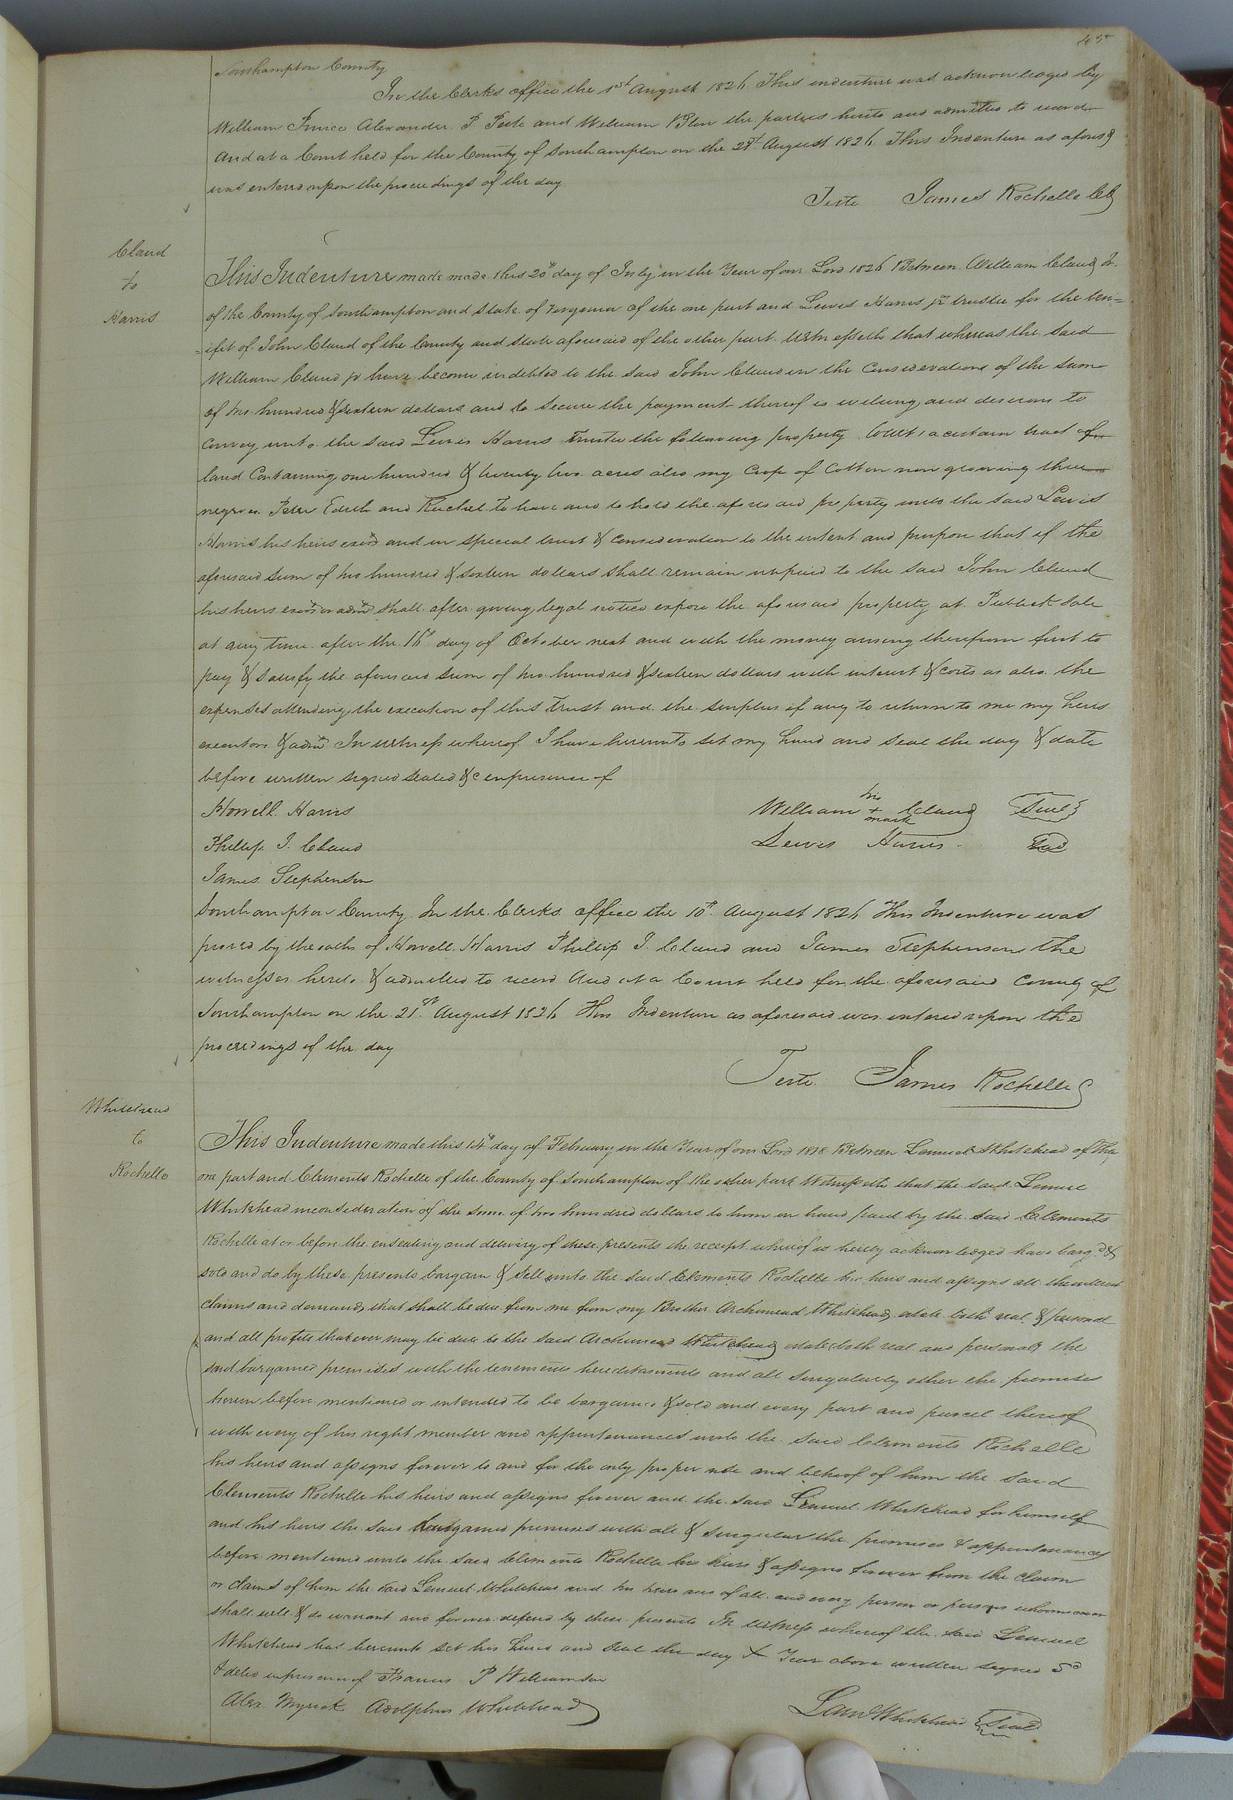 45
Southampton County
In the Clerks office the 1st August 1826 This indenture was acknowledged by
William Alexander P Pete and William the parties hereto and admitted to record
And at a Court held for the County of Southampton on the 21st August 1826 This Indenture as aforesd
was entered upon the proceedings of the day
Teste James Rochelle
Claud
to
Harris
This Indenture made made this 20th day of July in the Year of our Lord 1826 Between William Claud Jr
of the County of Southampton and State of Virginia of the one part and Lewis Harris jr trustee for the ben=
=ifit of John Claud of the County and State aforesaid of the other part Witnesseth that whereas the Said
William Claud jr have become indebted to the said John Claud in the Considerations of the sum
of two hundred & sixteen dollars and to secure the payment thereof is willing and desirous to
convey unto the said Lewis Harris trustee the following property a certain tract of
land Containing one hundred & twenty two acres also my Crop of Cotton now growing three
negroes Peter Edith and Rachel To have and to hold the aforesaid property unto the said Lewis
Harris his heirs and in special trust & consideration to the intent and purpose that if the
aforesaid sum of two hundred & sixteen dollars shall remain unpaid to the said John Claud
his heirs shall after giving legal notice expose the aforesaid property at Publick Sale
at any time after the 16th day of October next and with the money arising therefrom first to
pay & Satisfy the aforesaid sum of two hundred & sixteen dollars with interest & costs as also the
expenses attending the execution of this Trust and the surplus if any to return to me my heirs
executors & admrs In witness whereof I have hereunto set my hand and seal the day & date
before written signed sealed &c in presence of
Howell Harris
William his + mark Claud Seal
Phillip J. Claud
Lewis Harris Seal
James Stephenson
Southampton County In the Clerks office the 10th August 1826 This Indenture was
proved by the oaths of Howell Harris Phillip J. Claud and James Stephenson the
witnesses hereto & admitted to record And at a Court held for the aforesaid County of
Southampton on the 21st August 1826 This Indenture as aforesaid was entered upon the
proceedings of the day
Teste James Rochelle
Whitehead
to
Rochelle
This Indenture made this 14th day of February in the Year of our Lord 1818 Between Lemuel Whitehead of the
one part and Clements Rochelle of the County of Southampton of the other part Witnesseth that the said Lemuel
Whitehead in consideration of the sum of two hundred dollars to him in hand paid by the said Clements
Rochelle at or before the ensealing and delivery of these presents the receipt whereof is hereby acknowledged have bargd &
sold and do by these presents bargain & Sell unto the Said Clements Rochelle his heirs and assigns all the
claims and demands that shall be due from me from my Brother Archimead Whitehead estate both real & personal
and all profits that ever may be due to the said Archimead Whitehead estate both real and personal the
said bargained premises with the tenements hereditaments and all Singularly other the premises
herein before mentioned or intended to be bargained & sold and every part and parcel thereof
with every of his right member and appurtenances unto the said Clements Rochelle
his heirs and assigns forever to and for the only proper use and behoof of him the said
Clements Rochelle his heirs and assigns forever and the said Lemuel Whitehead for himself
and his heirs the said bargained premises with all & singular the premises & appurtenances
before mentioned unto the said Clements Rochelle his heirs & assigns forever from the claim
or claims of him the said Lemuel Whitehead and his heirs and of all and every person or persons whomsoever
shall will & do warrant and forever defend by these presents In witness whereof the said Lemuel
Whitehead has hereunto set his hand and seal the day & Year above written signed Sd
& deld in presence of Francis P Williamson
Alex. Myrick Adolphus Whitehead
Leml Whitehead Seal